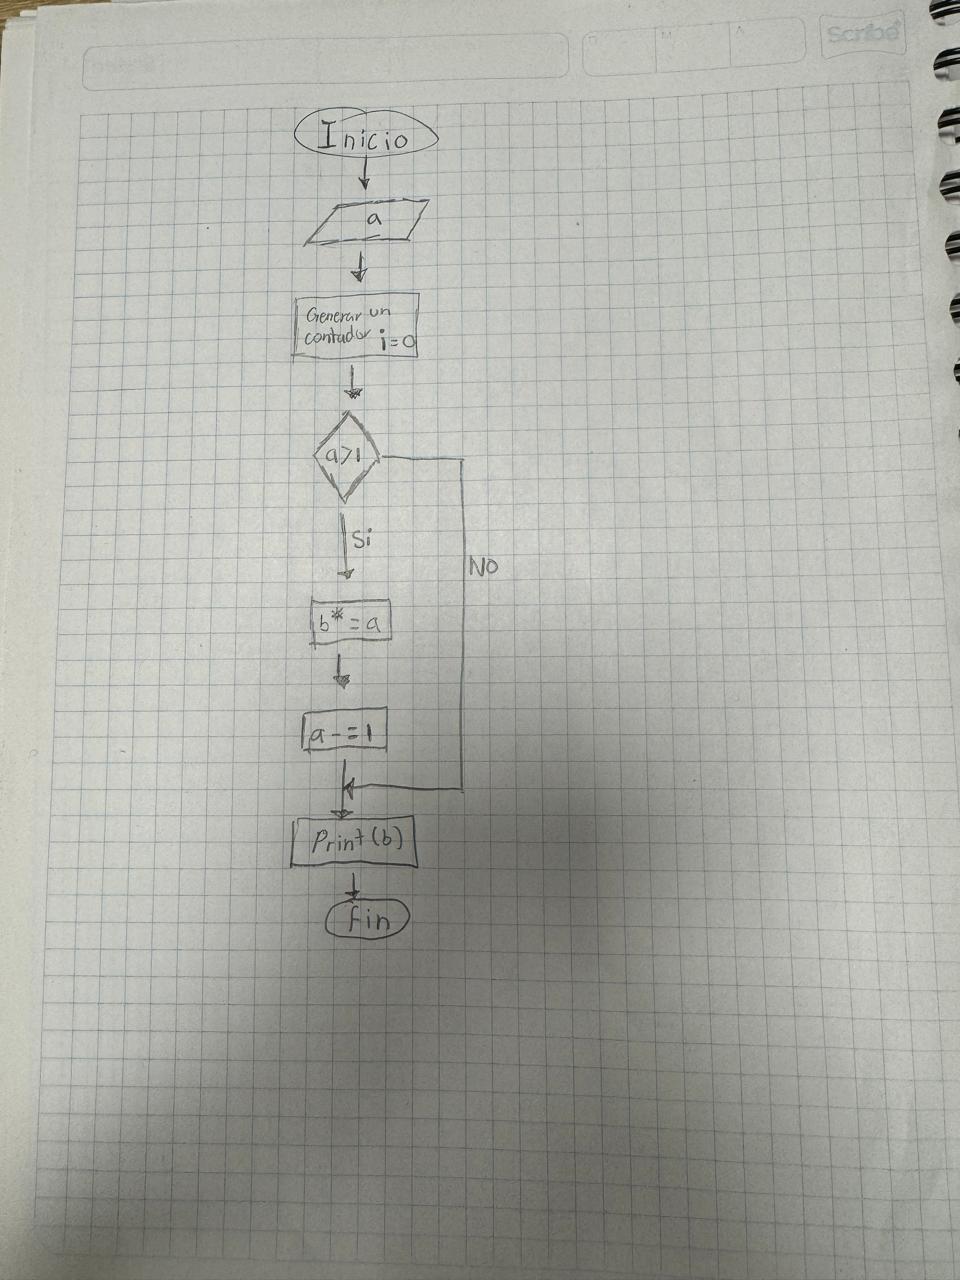 Scribe
Inicio
a
Generar un
contador i=0
a>1
Si
No
b*=a
a-=1
Print(b)
fin